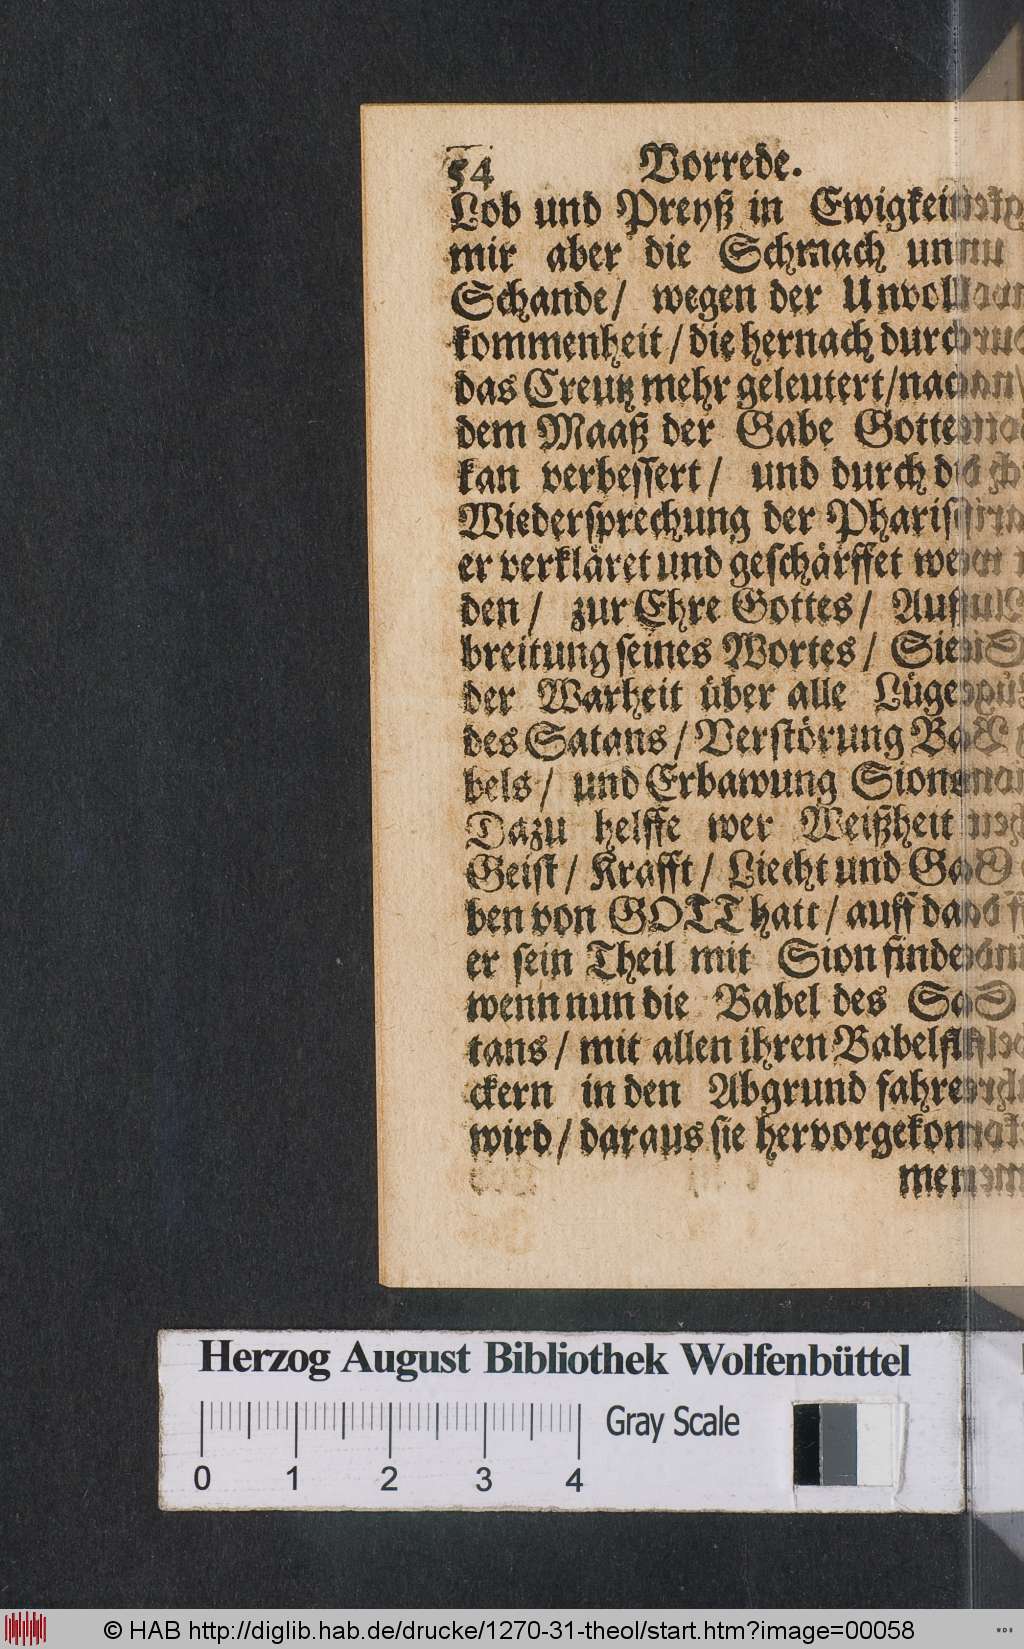 54 Vorrede.
Lob und Preyß in Ewigkeit
mir aber die Schmach unn
Schande/ wegen der Unvoll
kommenheit/ die hernach durch
das Creutz mehr geleutert/nach
dem Maaß der Gabe Gottes
kan verbessert/ und durch die
Wiedersprechung der Pharise
er verkläret und geschärffet wer
den/ zur Ehre Gottes/ Auß
breitung seines Wortes/ Sieg
der Warheit über alle Lügen
des Satans/ Verstörung Ba
bels/ und Erbawung Sions
Dazu helffe wer Weißheit
Geist/ Krafft/ Liecht und Ga
ben von GOTT hatt/ auff daß
er sein Theil mit Sion finde
wenn nun die Babel des Sa
tans/ mit allen ihren Babelfli
ckern in den Abgrund fahren
wird/ daraus sie hervorgekom
men
Herzog August Bibliothek Wolfenbüttel
Gray Scale
0 1 2 3 4
© HAB http://diglib.hab.de/drucke/1270-31-theol/start.htm?image=00058